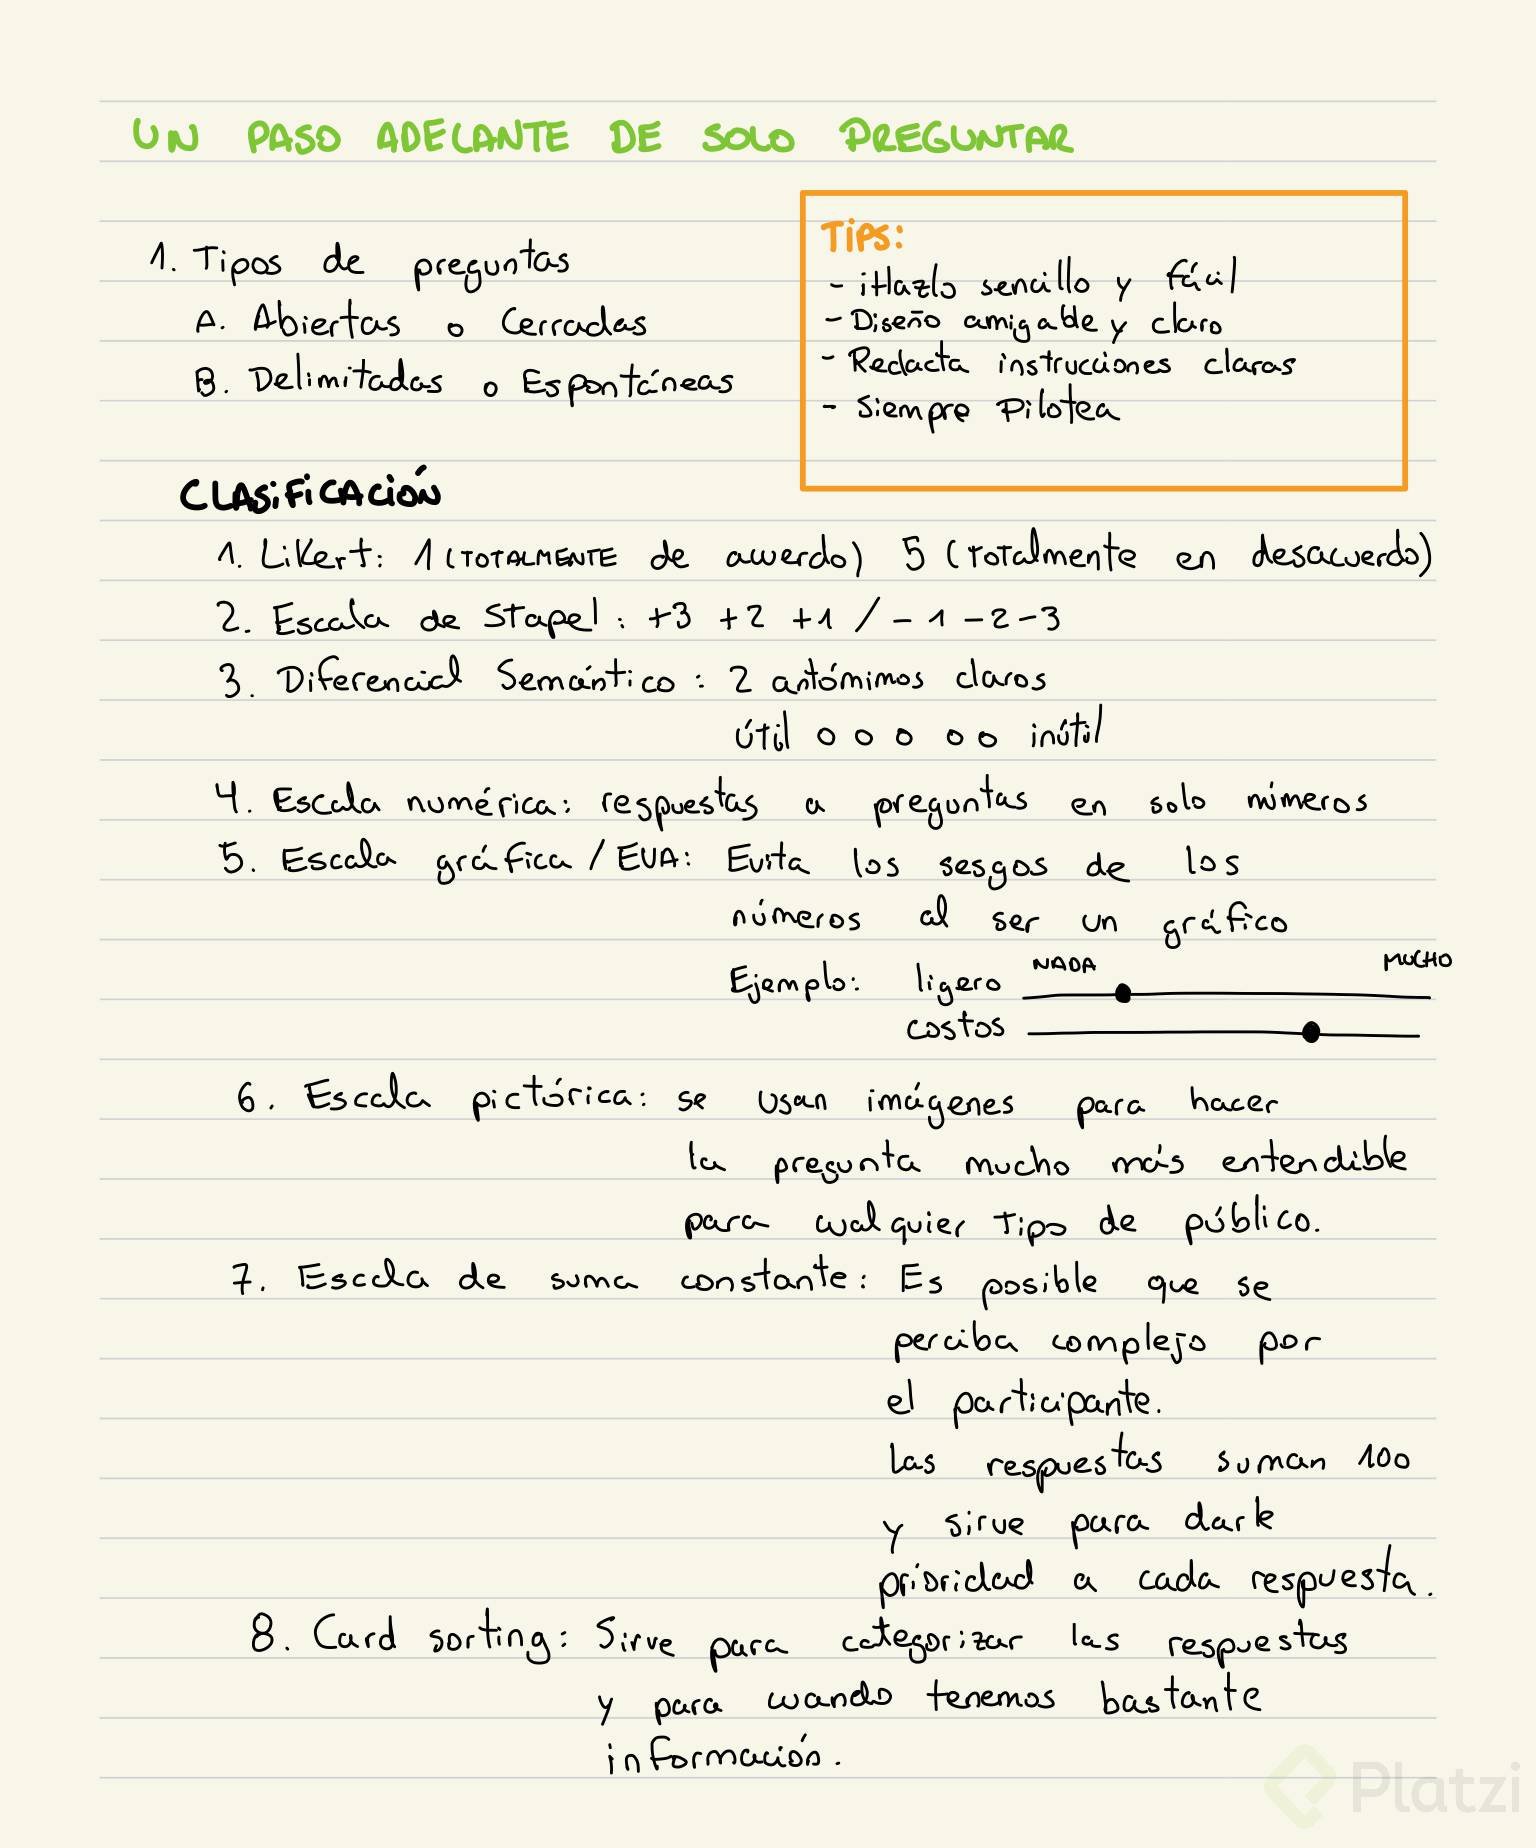 UN PASO ADELANTE DE SOLO PREGUNTAR
1. Tipos de preguntas
A. Abiertas o Cerradas
B. Delimitadas o Espontáneas
Tips:
- ¡Hazlo sencillo y fácil
- Diseño amigable y claro
- Redacta instrucciones claras
- Siempre Pilotea
CLASIFICACIÓN
1. Likert: 1 (TOTALMENTE de acuerdo) 5 (Totalmente en desacuerdo)
2. Escala de Stapel: +3 +2 +1 / -1 -2 -3
3. Diferencial Semántico: 2 antómimos claros
útil o o o o o inútil
4. Escala numérica: respuestas a preguntas en solo números
5. Escala gráfica / EVA: Evita los sesgos de los
números al ser un gráfico
NADA MUCHO
Ejemplo: ligero
costos
6. Escala pictórica: se usan imágenes para hacer
la pregunta mucho más entendible
para cualquier tipo de público.
7. Escala de suma constante: Es posible que se
perciba complejo por
el participante.
Las respuestas suman 100
y sirve para darle
prioridad a cada respuesta.
8. Card sorting: Sirve para categorizar las respuestas
y para cuando tenemos bastante
información.
Platzi